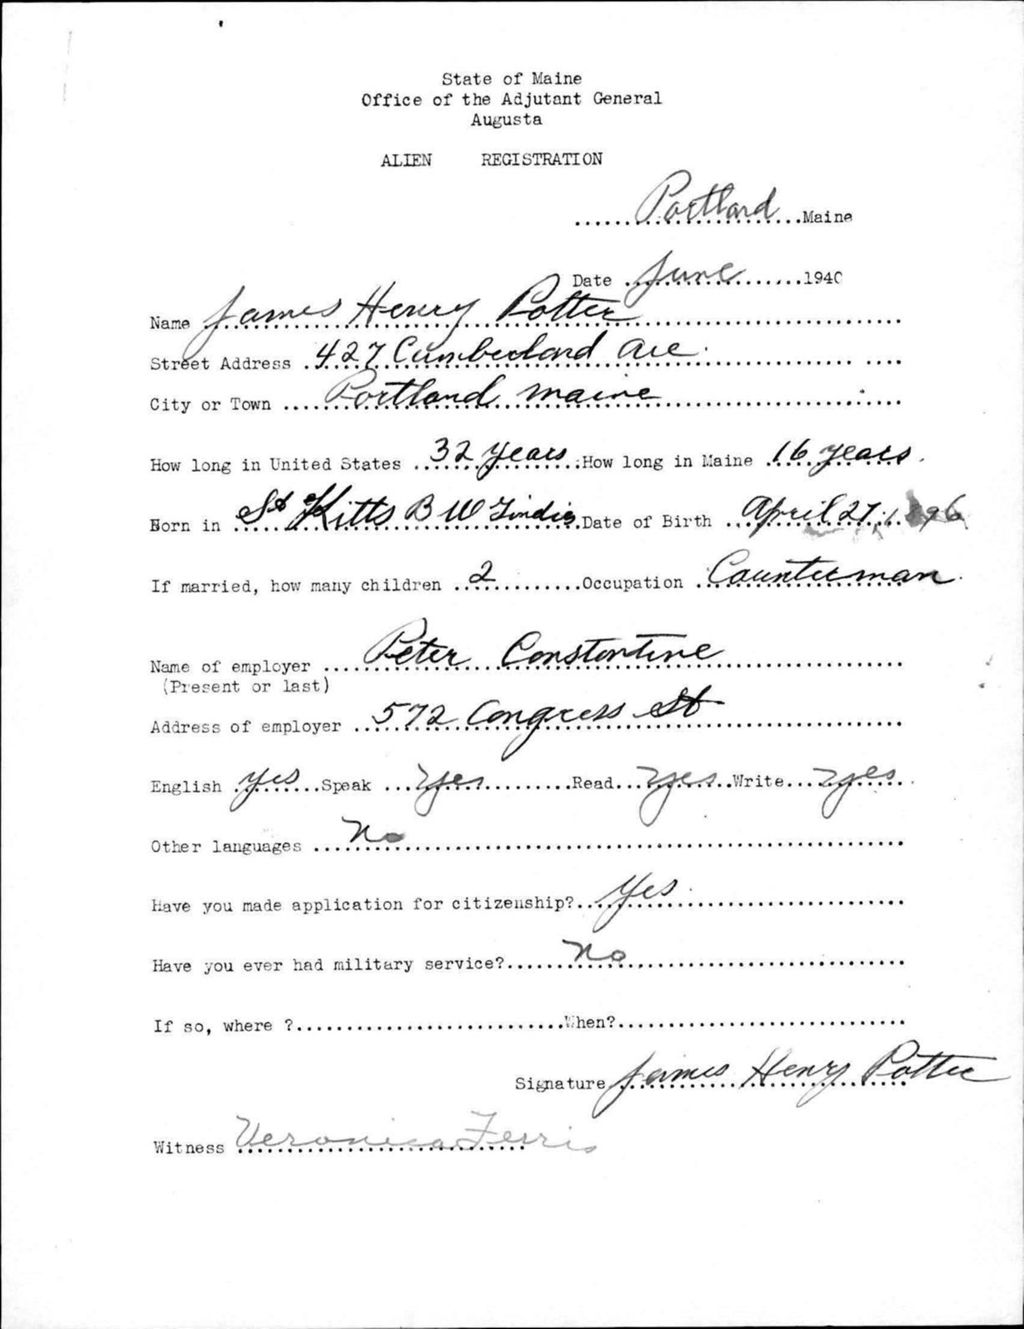 State of Maine
Office of the Adjutant General
Augusta
ALIEN REGISTRATION
......Portland...Maine
Date ..June.......1940
Name James Henry Potter
Street Address .427 Cumberland Ave.
City or Town ....Portland Maine
How long in United States ..32 years.:How long in Maine .16 years.
Born in St Kitts B W Indies Date of Birth ..April 27, 1896
If married, how many children ..2..........Occupation .Counterman.
Name of employer ....Peter Constantine
(Present or last)
Address of employer ..572 Congress St
English .yes......Speak ...yes..........Read...yes...Write...yes.
Other languages ....No
Have you made application for citizenship?...Yes.
Have you ever had military service?......No
If so, where ?...........................When?............................
Signature James Henry Potter
Witness Veronica Ferris